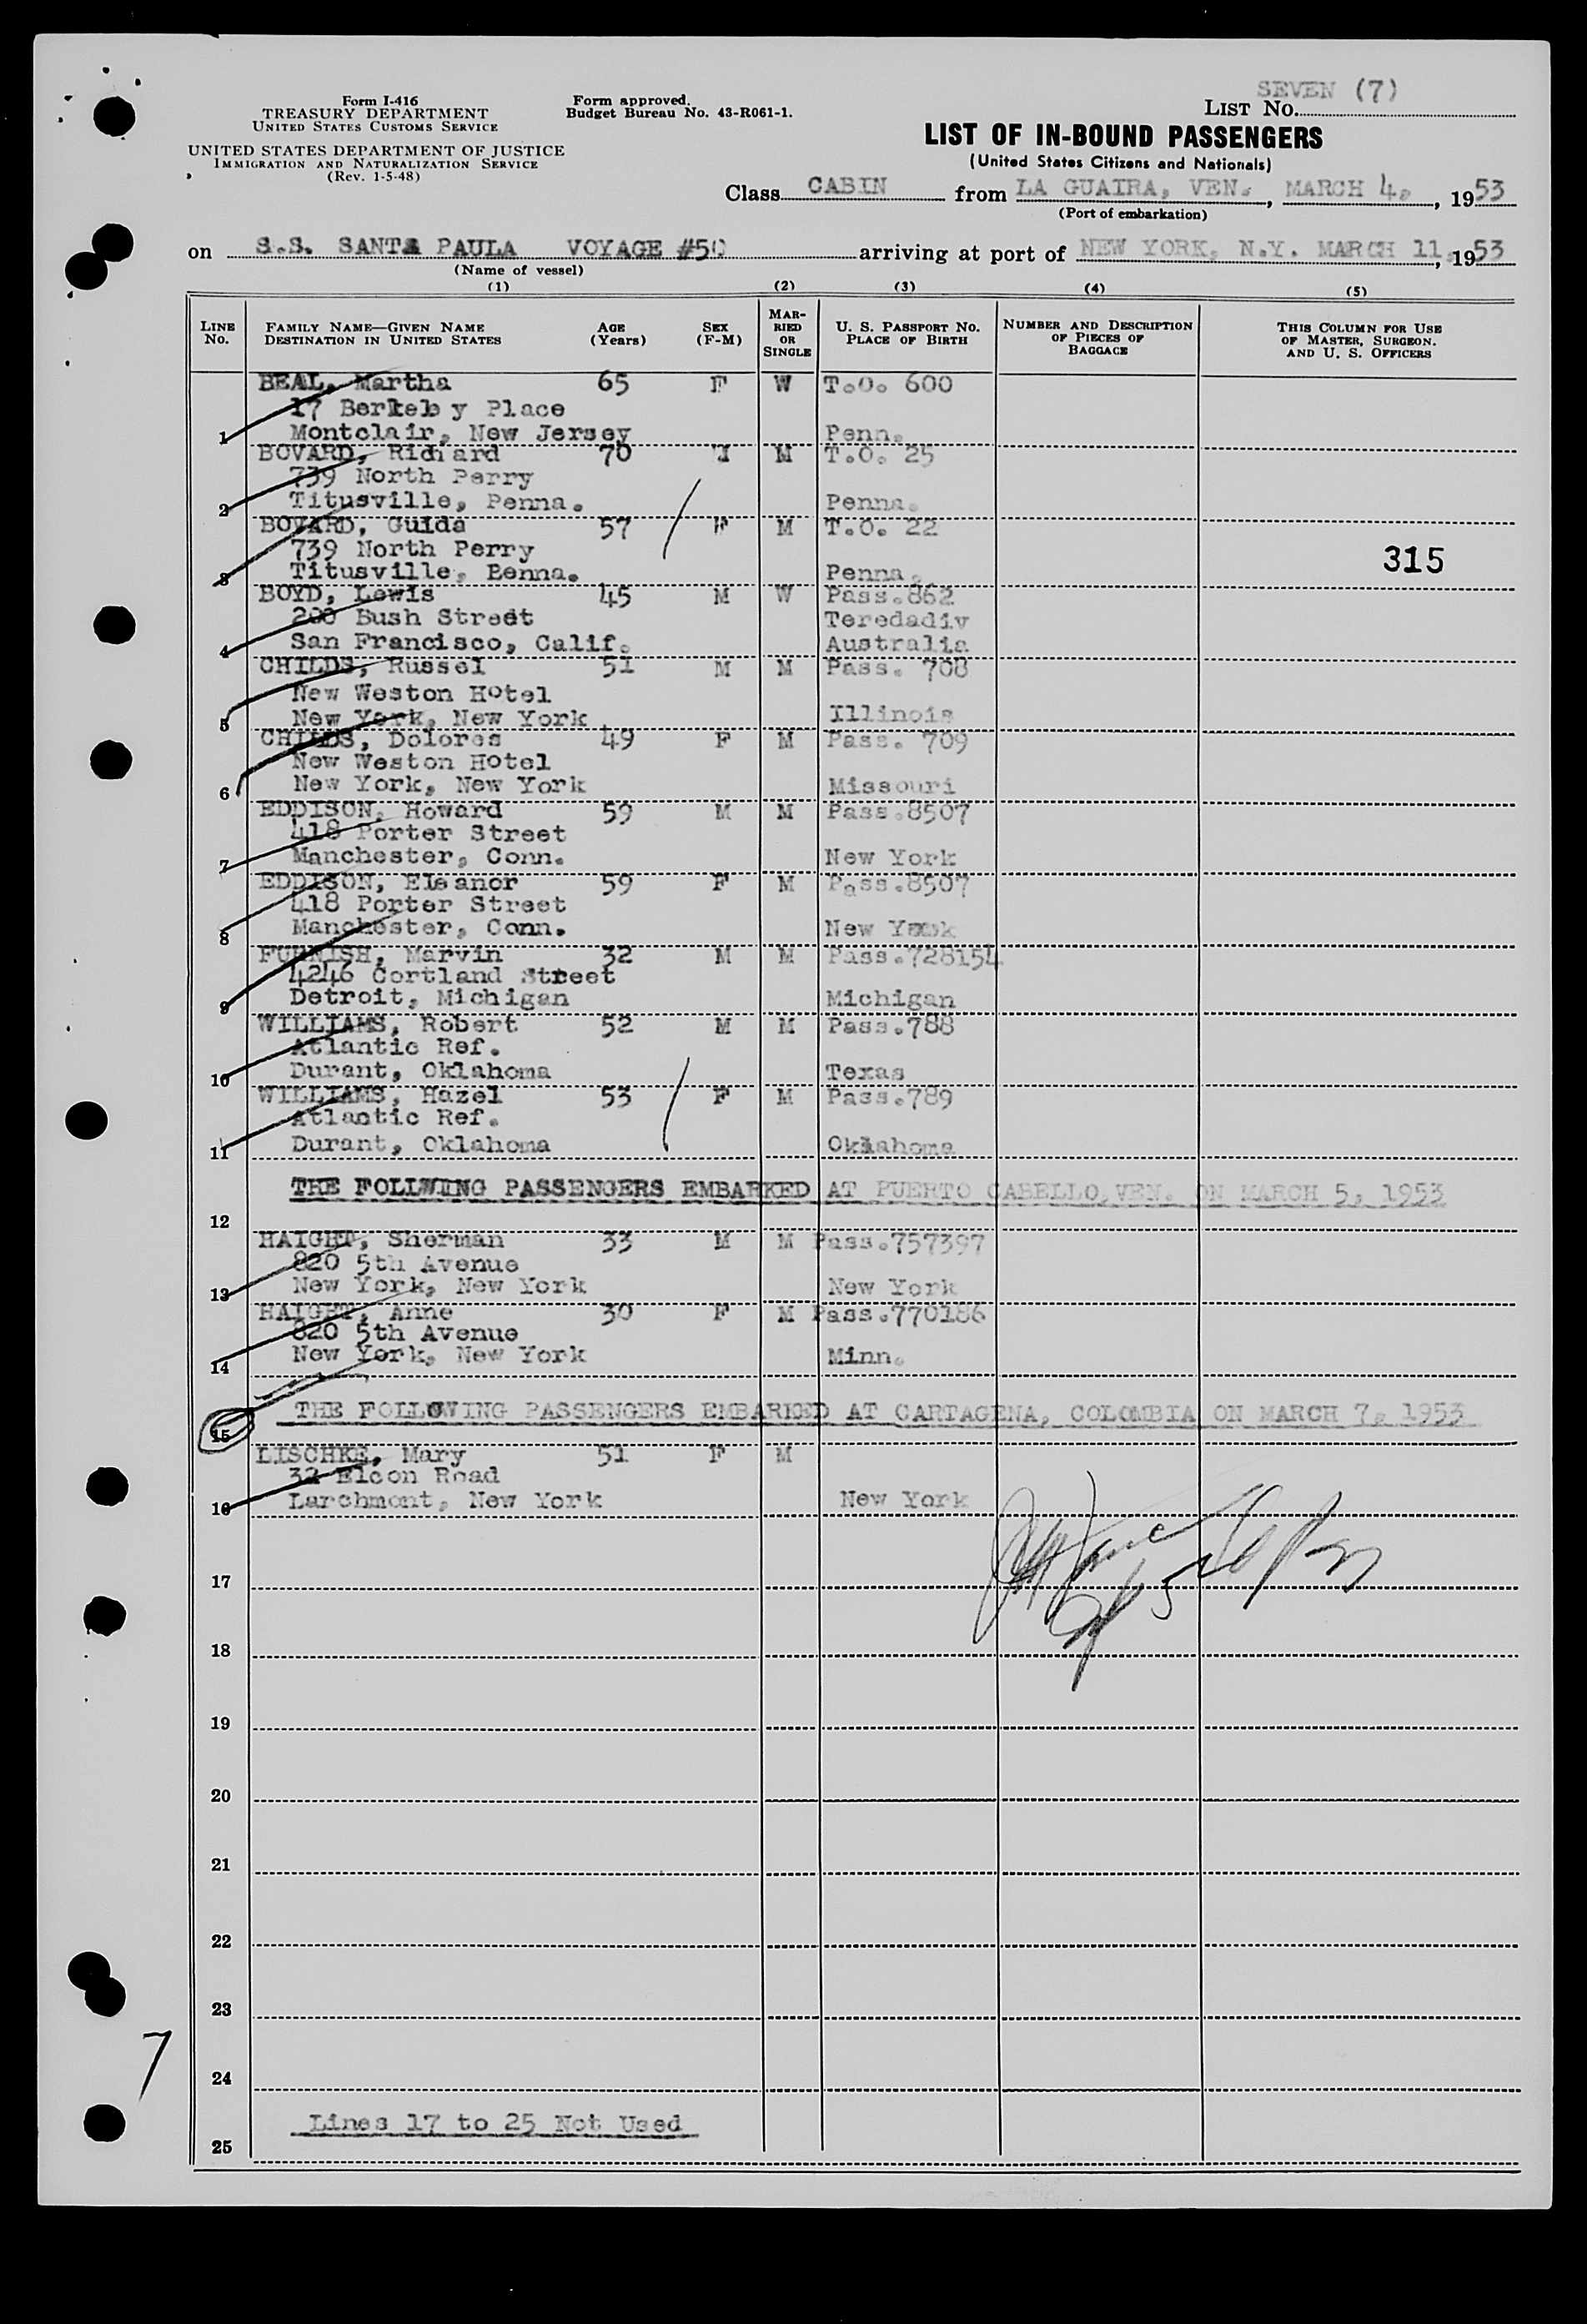 SEVEN (7)
LIST No.
Form I-416
TREASURY DEPARTMENT
UNITED STATES CUSTOMS SERVICE
UNITED STATES DEPARTMENT OF JUSTICE
IMMIGRATION AND NATURALIZATION SERVICE
(Rev. 1-5-48)
Form approved.
Budget Bureau No. 43-R061-1.
LIST OF IN-BOUND PASSENGERS
(United States Citizens and Nationals)
Class CABIN from LA GUAIRA, VEN., MARCH 4, 1953
(Port of embarkation)
on S.S. SANTA PAULA VOYAGE #50 arriving at port of NEW YORK, N.Y. MARCH 11, 1953
(Name of vessel)
(1) (2) (3) (4) (5)
LINE No. FAMILY NAME—GIVEN NAME DESTINATION IN UNITED STATES AGE (Years) SEX (F-M) MARRIED OR SINGLE U. S. PASSPORT No. PLACE OF BIRTH NUMBER AND DESCRIPTION OF PIECES OF BAGGAGE THIS COLUMN FOR USE OF MASTER, SURGEON. AND U. S. OFFICERS
BEAL, Martha 65 F W T.O. 600
17 Berkeley Place
1 Montclair, New Jersey Penn.
BOVARD, Richard 70 M T.O. 25
739 North Perry
2 Titusville, Penna. Penna.
BOVARD, Guida 57 F M T.O. 22
739 North Perry
315
3 Titusville, Benna. Penna.
BOYD, Lewis 45 M W Pass.862
200 Bush Street Teredadiv
4 San Francisco, Calif. Australia
CHILDS, Russel 51 M M Pass. 708
New Weston Hotel
5 New York, New York Illinois
CHILDS, Dolores 49 F M Pass. 709
New Weston Hotel
6 New York, New York Missouri
EDDISON, Howard 59 M M Pass.8507
418 Porter Street
7 Manchester, Conn. New York
EDDISON, Eleanor 59 F M Pass.8507
418 Porter Street
8 Manchester, Conn. New York
FURNISH, Marvin 32 M M Pass.728154
4246 Cortland Street
9 Detroit, Michigan Michigan
WILLIAMS, Robert 52 M M Pass.788
Atlantic Ref.
10 Durant, Oklahoma Texas
WILLIAMS, Hazel 53 F M Pass.789
Atlantic Ref.
11 Durant, Oklahoma Oklahoma
THE FOLLWING PASSENGERS EMBARKED AT PUERTO CABELLO, VEN. ON MARCH 5, 1953
12
HAIGHT, Sherman 33 M M Pass.757397
820 5th Avenue
13 New York, New York New York
HAIGHT, Anne 30 F M Pass.770186
820 5th Avenue
14 New York, New York Minn.
THE FOLLOWING PASSENGERS EMBARKED AT CARTAGENA, COLOMBIA ON MARCH 7, 1953
15
LISCHKE, Mary 51 F M
32 Elcon Road
16 Larchmont, New York New York
17
18
19
20
21
22
23
7
24
Lines 17 to 25 Not Used
25